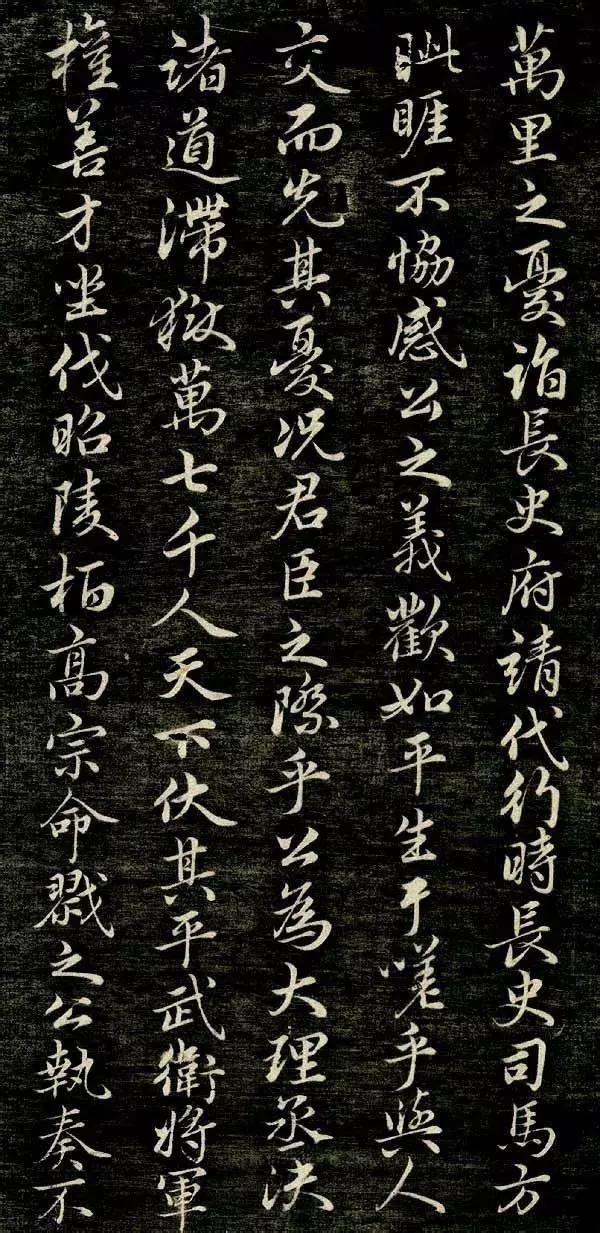 萬里之憂詣長史府請代行時長史司馬方
眦睚不協感公之義歡如平生于嗟乎與人
交而先其憂况君臣之際乎公為大理丞决
諸道滯獄萬七千人天下伏其平武衛將軍
權善才坐伐昭陵柏高宗命戮之公執奏不